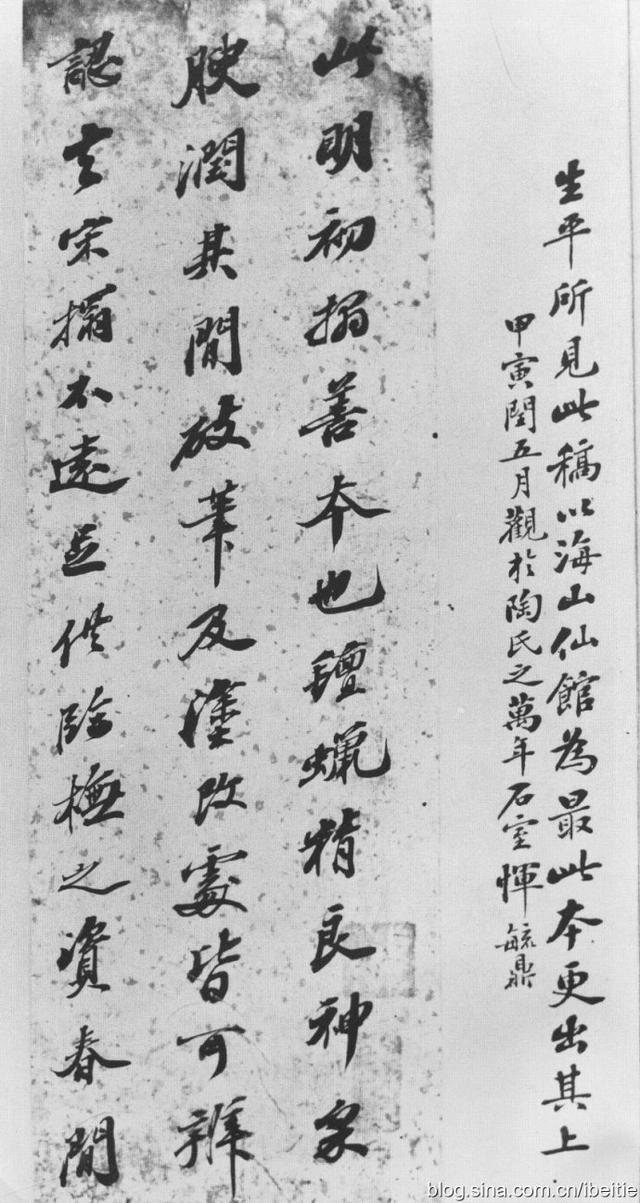 生平所見此稿以海山仙館為最此本更出其上
甲寅閏五月觀於陶氏之萬年石室惲毓鼎
此明初搨善本也氊蠟精良神采
腴潤其間破筆及塗改處皆可辨
認去宋搨不遠足供臨橅之資春間
blog.sina.com.cn/ibeitie